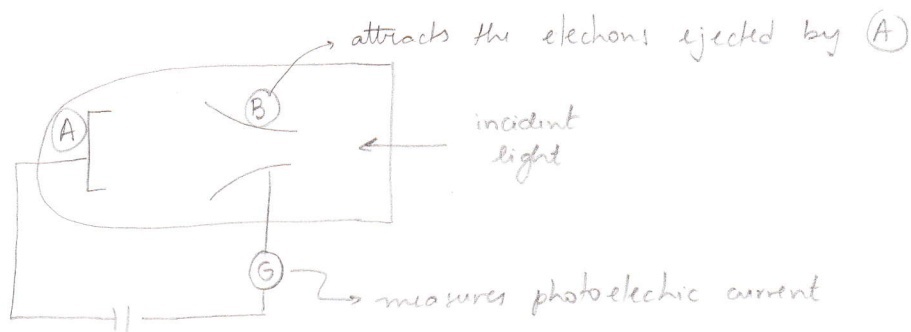 attracts the electrons ejected by A
B
A
incident
light
G
measures photoelectric current